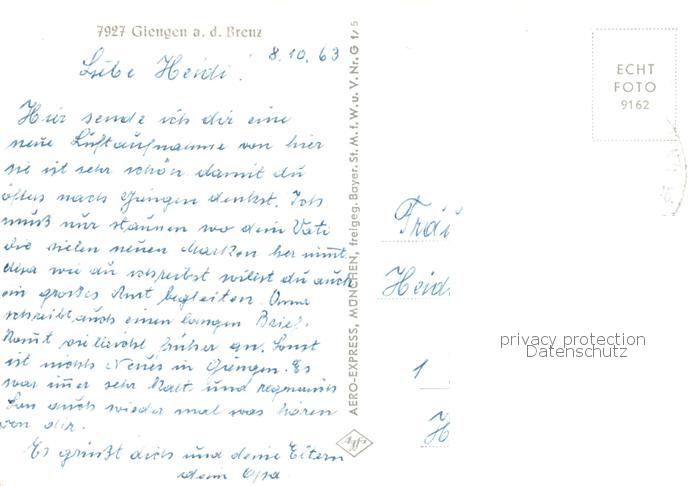 7927 Giengen a. d. Brenz
8.10.63
Liebe Heidi.
Hier sende ich dir eine
neue Luftaufnahme von hier
sie ist sehr schön damit du
öfters nach Giengen denkst. Ich
muß nur staunen wo dein Vati
die vielen neuen Marken her nimmt.
wie du schreibst willst du auch
ein großes Amt begleiten. Oma
schreibt auch einen langen Brief.
kommt sie früher an. Sonst
ist nichts Neues in Giengen. Es
war immer sehr kalt und regnerisch
Lass auch wieder mal was hören
von dir.
Es grüßt dich und deine Eltern
dein Opa
AERO-EXPRESS, MÜNCHEN, freigeg. Bayer. St. M. f. W. u. V. Nr. G 1/5
Agfa
ECHT
FOTO
9162
Fräu
Heidi
1
H
privacy protection
Datenschutz